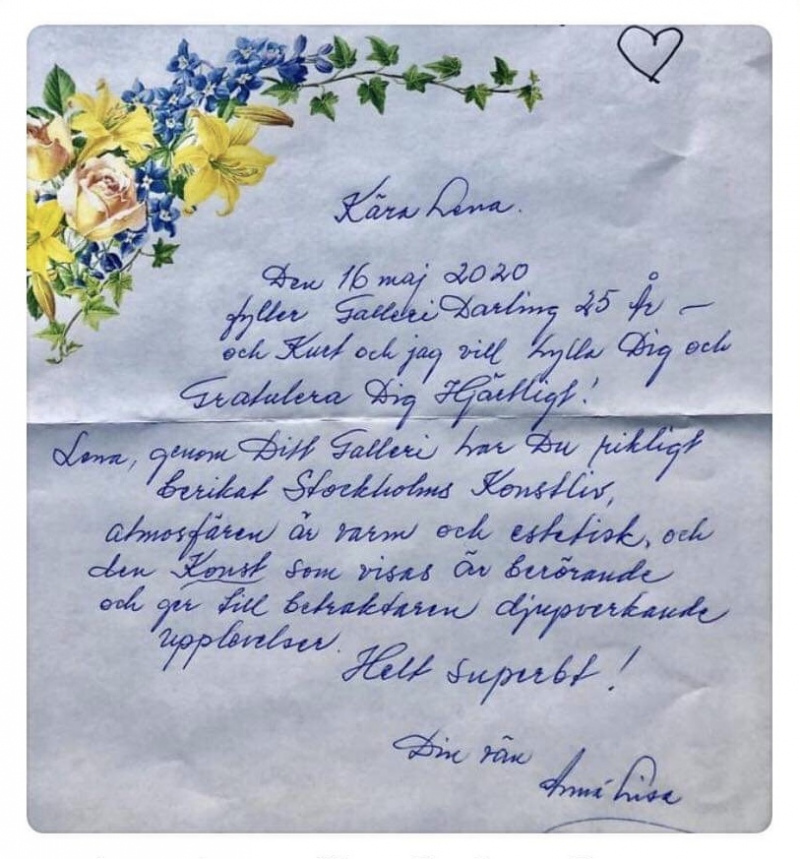 Kära Lena.
Den 16 maj 2020
fyller Galleri Darling 25 År —
och Kurt och jag vill hylla Dig och
Gratulera Dig Hjärtligt!
Lena, genom Ditt Galleri har Du rikligt
berikat Stockholms Konstliv,
atmosfären är varm och estetisk, och
den Konst som visas är berörande
och ger till betraktaren djupverkande
upplevelser.
Helt superbt!
Din vän
Anna Lisa